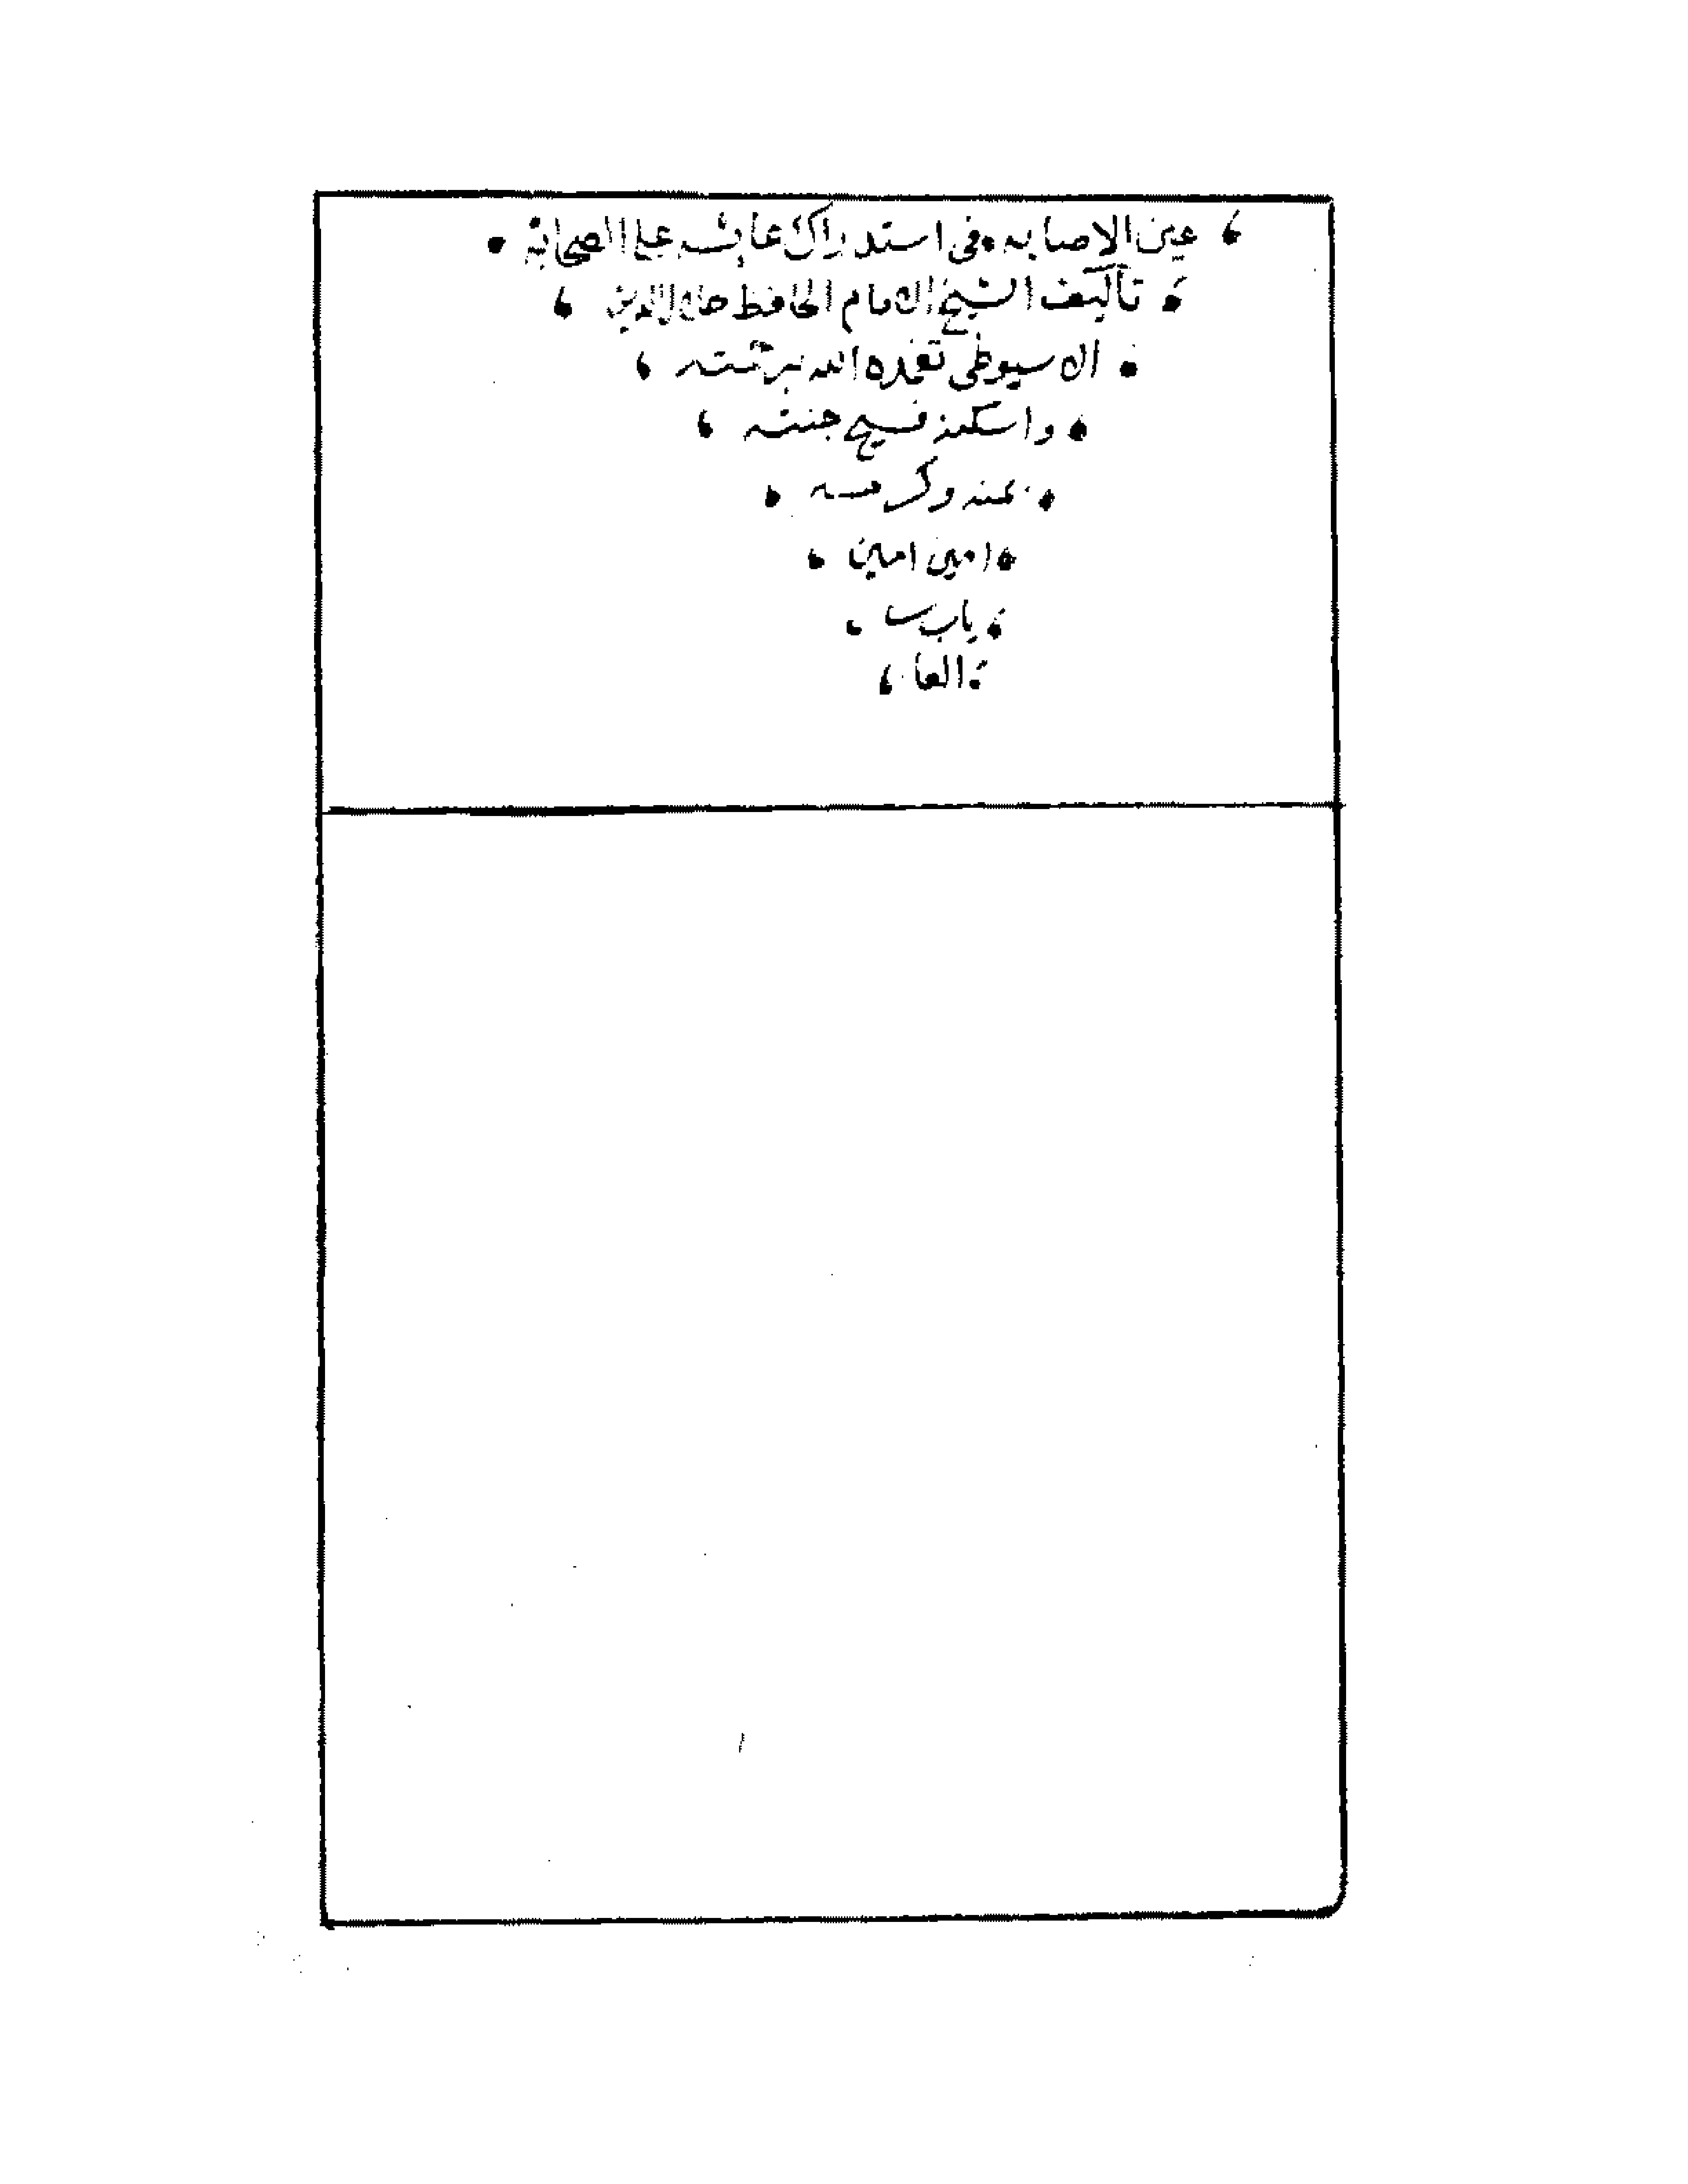 عين الاصابه في استدراك عايشه على الصحابة
تأليف الشيخ الامام الحافظ جلال الدين
الاسيوطي تغمده الله برحمته
واسكنه فسيح جنته
بمنه وكرمه
امين امين
يارب
العا